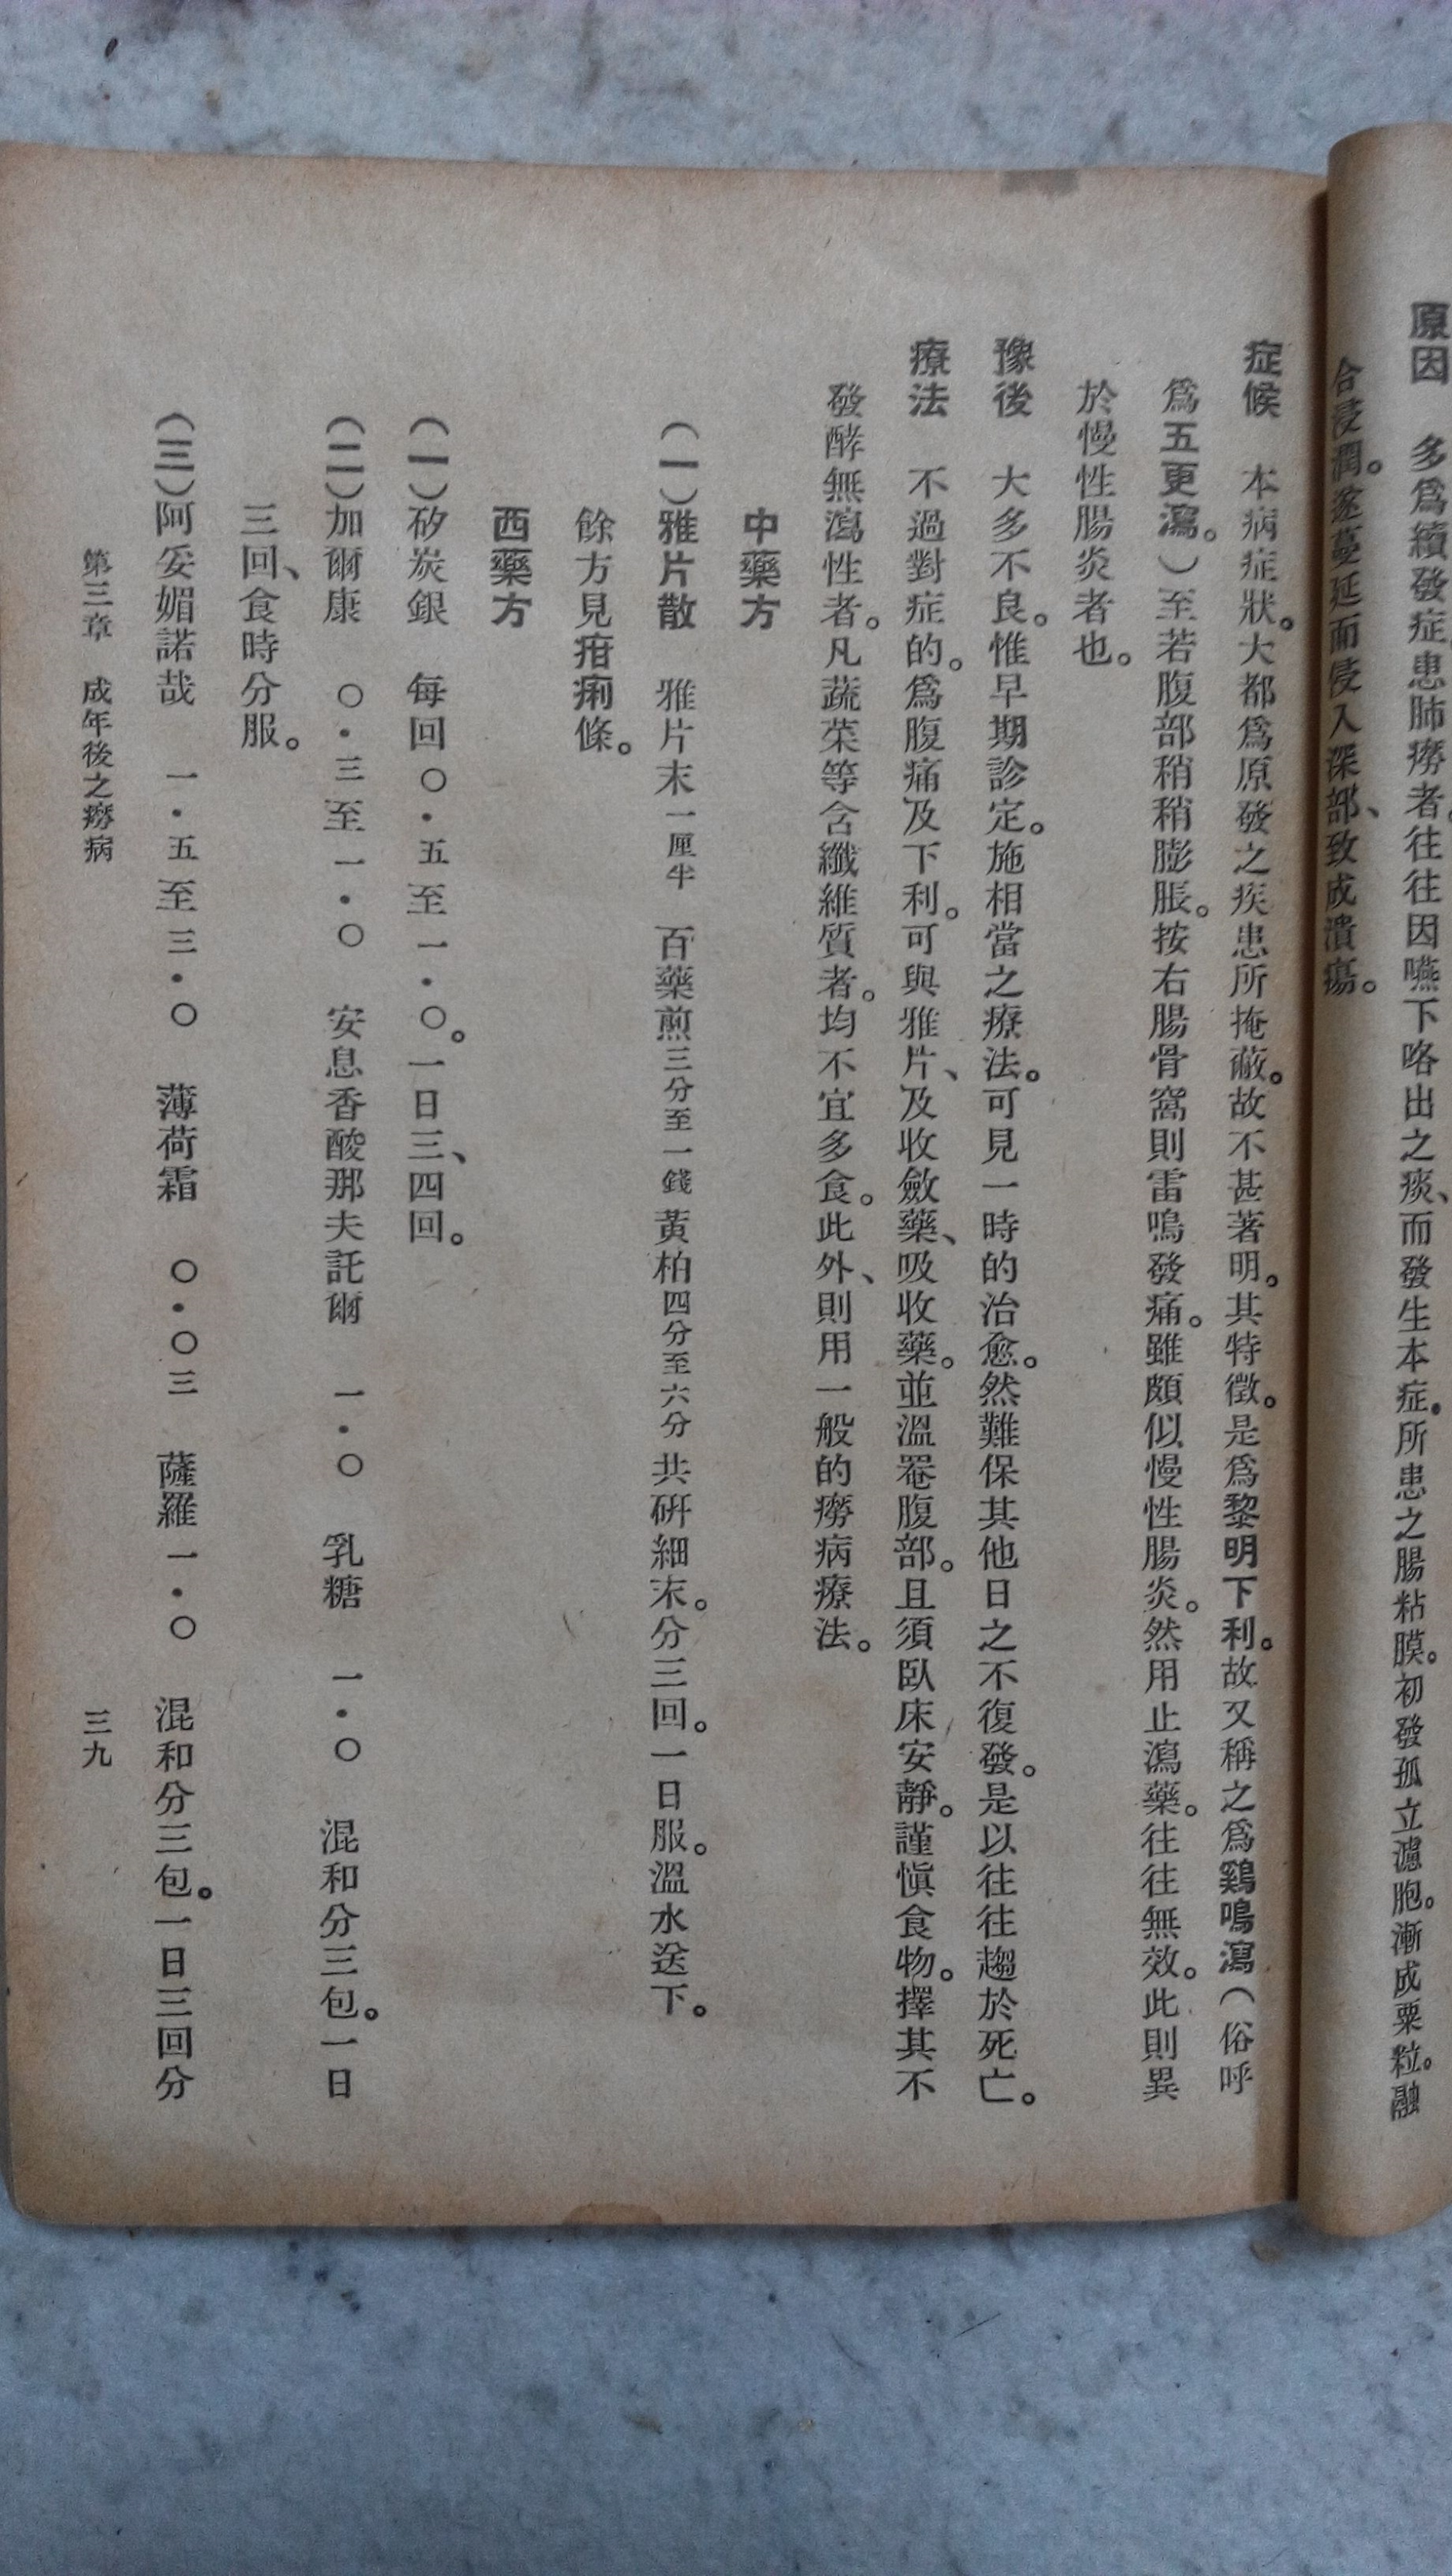 原因　多爲續發症患肺癆者。往往因嚥下咯出之痰、而發生本症。所患之腸粘膜。初發孤立濾胞。漸成粟粒。融
合浸潤。遂蔓延而侵入深部、致成潰瘍。
症候　本病症狀。大都爲原發之疾患所掩蔽。故不甚著明。其特徵。是爲黎明下利。故又稱之爲鷄鳴瀉（俗呼
爲五更瀉。）至若腹部稍稍膨脹。按右腸骨窩則雷鳴發痛。雖頗似慢性腸炎。然用止瀉藥。往往無效。此則異
於慢性腸炎者也。
豫後　大多不良。惟早期診定。施相當之療法。可見一時的治愈。然難保其他日之不復發。是以往往趨於死亡。
療法　不過對症的。爲腹痛及下利。可與雅片、及收斂藥、吸收藥。並溫罨腹部。且須臥床安靜。謹愼食物。擇其不
發酵無瀉性者。凡蔬菜等含纖維質者。均不宜多食。此外、則用一般的癆病療法。
中藥方
（一）雅片散　雅片末一厘半　百藥煎三分至一錢　黃柏四分至六分　共研細末。分三回。一日服。溫水送下。
餘方見疳痢條。
西藥方
（一）矽炭銀　每回〇・五至一・〇。一日三、四回。
（二）加爾康　〇・三至一・〇　安息香酸那夫託爾　一・〇　乳糖　一・〇　混和分三包。一日
三回、食時分服。
（三）阿妥媚諾哉　一・五至三・〇　薄荷霜　〇・〇三　薩羅一・〇　混和分三包。一日三回分
第三章　成年後之癆病　三九